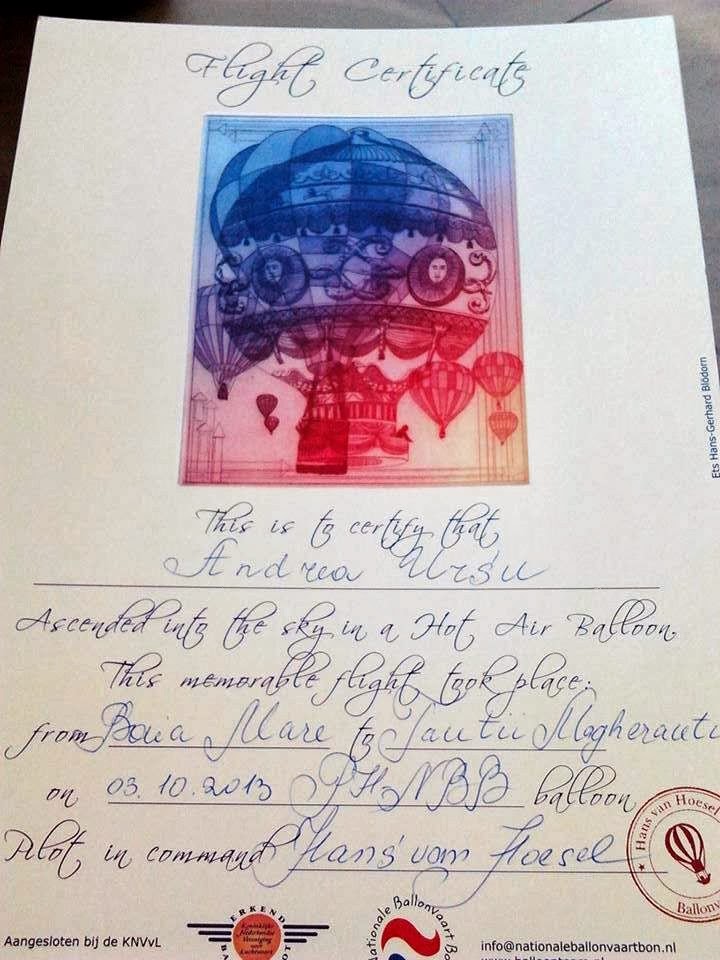 Flight Certificate
Ets Hans-Gerhard Blödorn
This is to certify that
Andrea Ursu
Ascended into the sky in a Hot Air Balloon,
This memorable flight took place:
from Baia Mare to Tautii Magherauti
on 03.10.2013 PH-NBB balloon
Pilot in command Hans van Hoesel
Hans van Hoesel
Ballonv
Aangesloten bij de KNVvL
ERKEND
Koninklijke Nederlandse Vereniging voor Luchtvaart
Nationale Ballonvaart Bo
info@nationaleballonvaartbon.nl